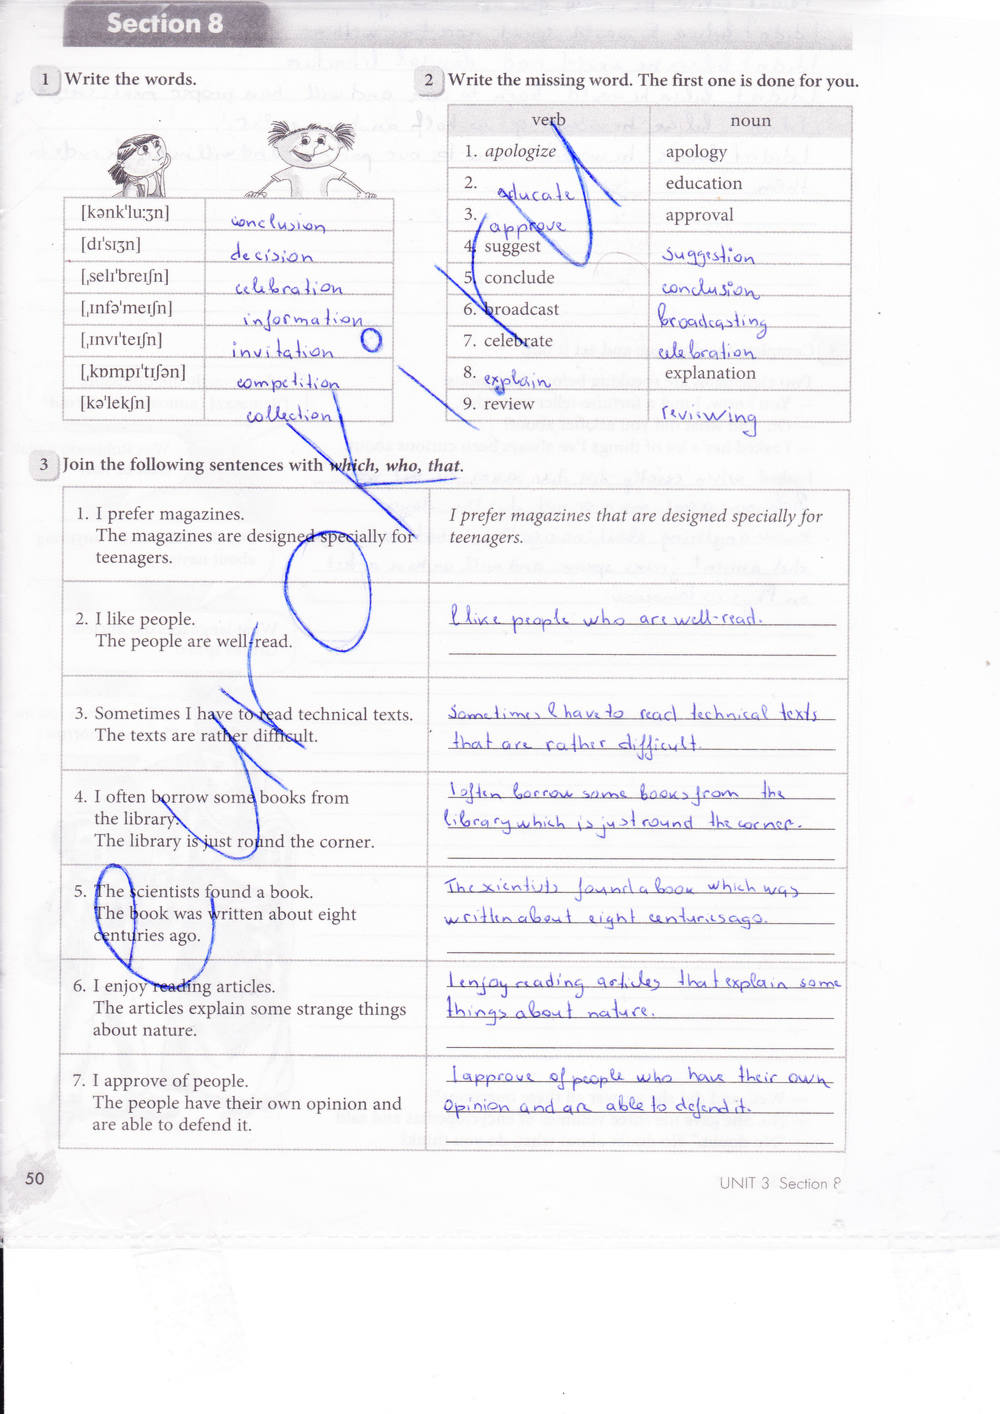 Section 8
1 Write the words.
[kənk'lu:ʒn] conclusion
[dɪ'sɪʒn] decision
[ˌselɪ'breɪʃn] celebration
[ˌɪnfə'meɪʃn] information
[ˌɪnvɪ'teɪʃn] invitation
[ˌkɒmpɪ'tɪʃən] competition
[kə'lekʃn] collection
2 Write the missing word. The first one is done for you.
verb noun
1. apologize apology
2. educate education
3. approve approval
4. suggest suggestion
5. conclude conclusion
6. broadcast broadcasting
7. celebrate celebration
8. explain explanation
9. review reviewing
3 Join the following sentences with which, who, that.
1. I prefer magazines.
The magazines are designed specially for
teenagers.
I prefer magazines that are designed specially for
teenagers.
2. I like people.
The people are well-read.
I like people who are well-read.
3. Sometimes I have to read technical texts.
The texts are rather difficult.
Sometimes I have to read technical texts
that are rather difficult.
4. I often borrow some books from
the library.
The library is just round the corner.
I often borrow some books from the
library which is just round the corner.
5. The scientists found a book.
The book was written about eight
centuries ago.
The scientists found a book which was
written about eight centuries ago.
6. I enjoy reading articles.
The articles explain some strange things
about nature.
I enjoy reading articles that explain some
things about nature.
7. I approve of people.
The people have their own opinion and
are able to defend it.
I approve of people who have their own
opinion and are able to defend it.
50
UNIT 3 Section 8
euroki.ru